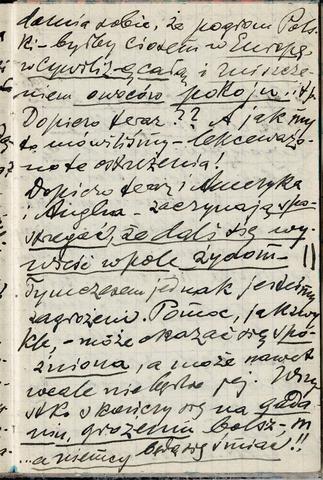 damia sobie, że pogrom Pols
ki – byłby ciosem w Europę,
w Cywiliz-ę całą i zniszcze
niem owoców pokoju.. itp.
Dopiero teraz?? A jak my
to mówiliśmy – lekceważo-
no te ostrzeżenia!
Dopiero teraz i Ameryka
i Anglia – zaczynają spo-
strzegać, że dali się wy-
wieść w pole żydom – !!
Tymczasem jednak jesteśmy
zagrożeni. Pomoc, jak zwy
kle, – może okazać się spó
źniona, a może nawet
wcale nie będzie jej. Wszy
stko skończy się na gada
niu, grożeniu bolsz-m
... a niemcy będą się śmiać!!